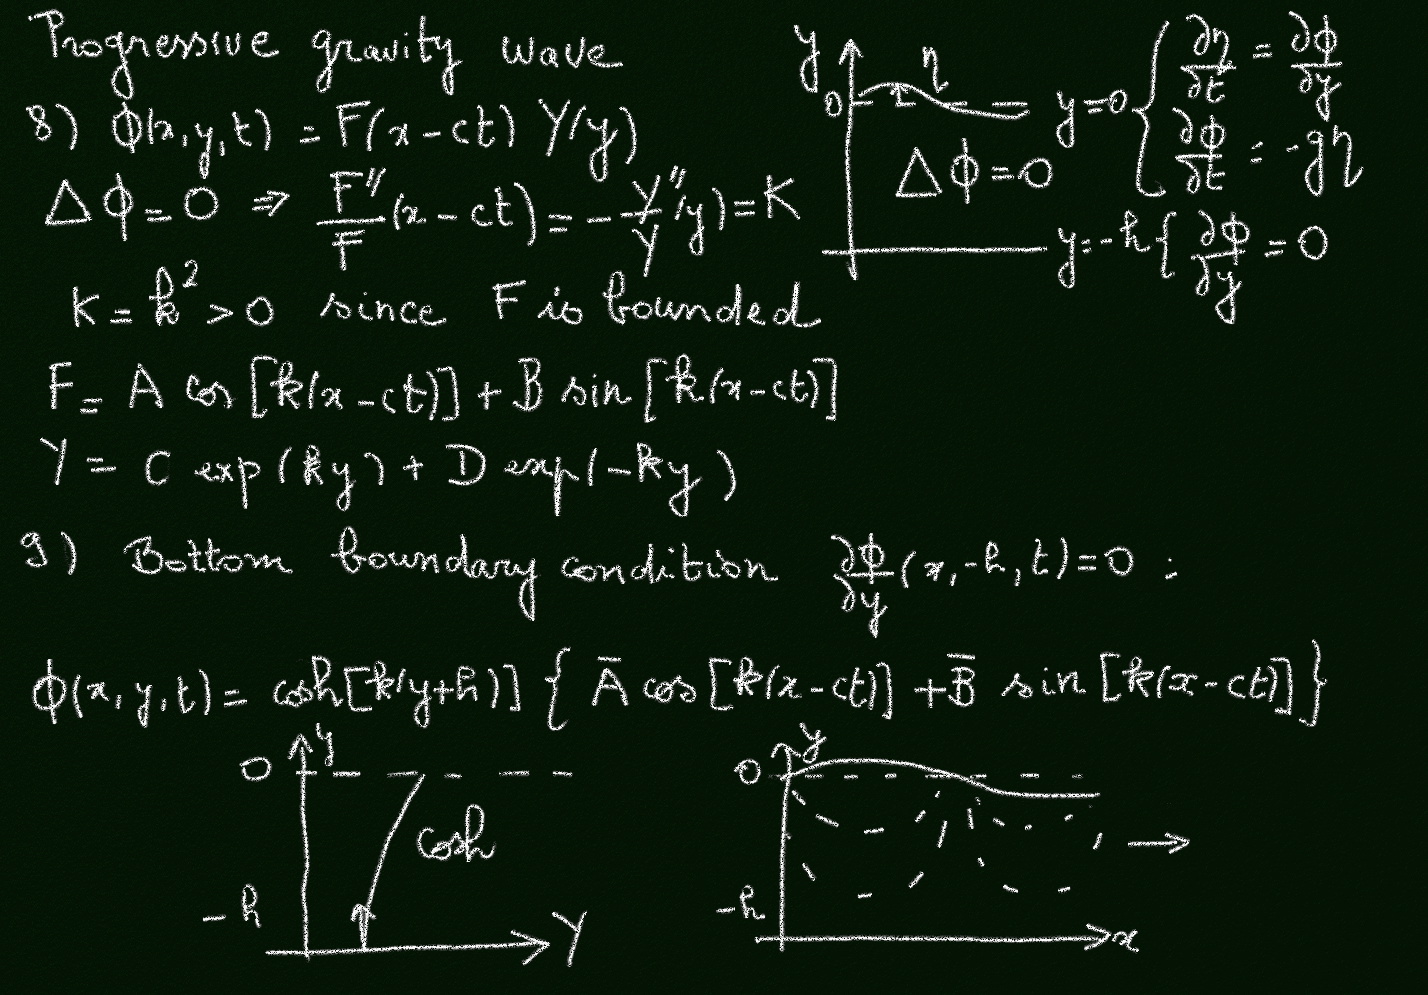 Progressive gravity wave
8) ϕ(x,y,t) = F(x-ct) Y(y)
Δϕ=0 ⇒ F''/F (x-ct) = -Y''/Y (y) = K
K = -k² > 0 since F is bounded
F = A cos[k(x-ct)] + B sin[k(x-ct)]
Y = C exp(ky) + D exp(-ky)
y
0
η
Δϕ=0
y=0 { ∂η/∂t = ∂ϕ/∂y
∂ϕ/∂t = -gη
y=-h { ∂ϕ/∂y = 0
9) Bottom boundary condition ∂ϕ/∂y (x,-h,t)=0 :
ϕ(x,y,t) = cosh[k(y+h)] { Ā cos[k(x-ct)] + B̄ sin[k(x-ct)] }
y
0
cosh
-h
Y
y
0
-h
x